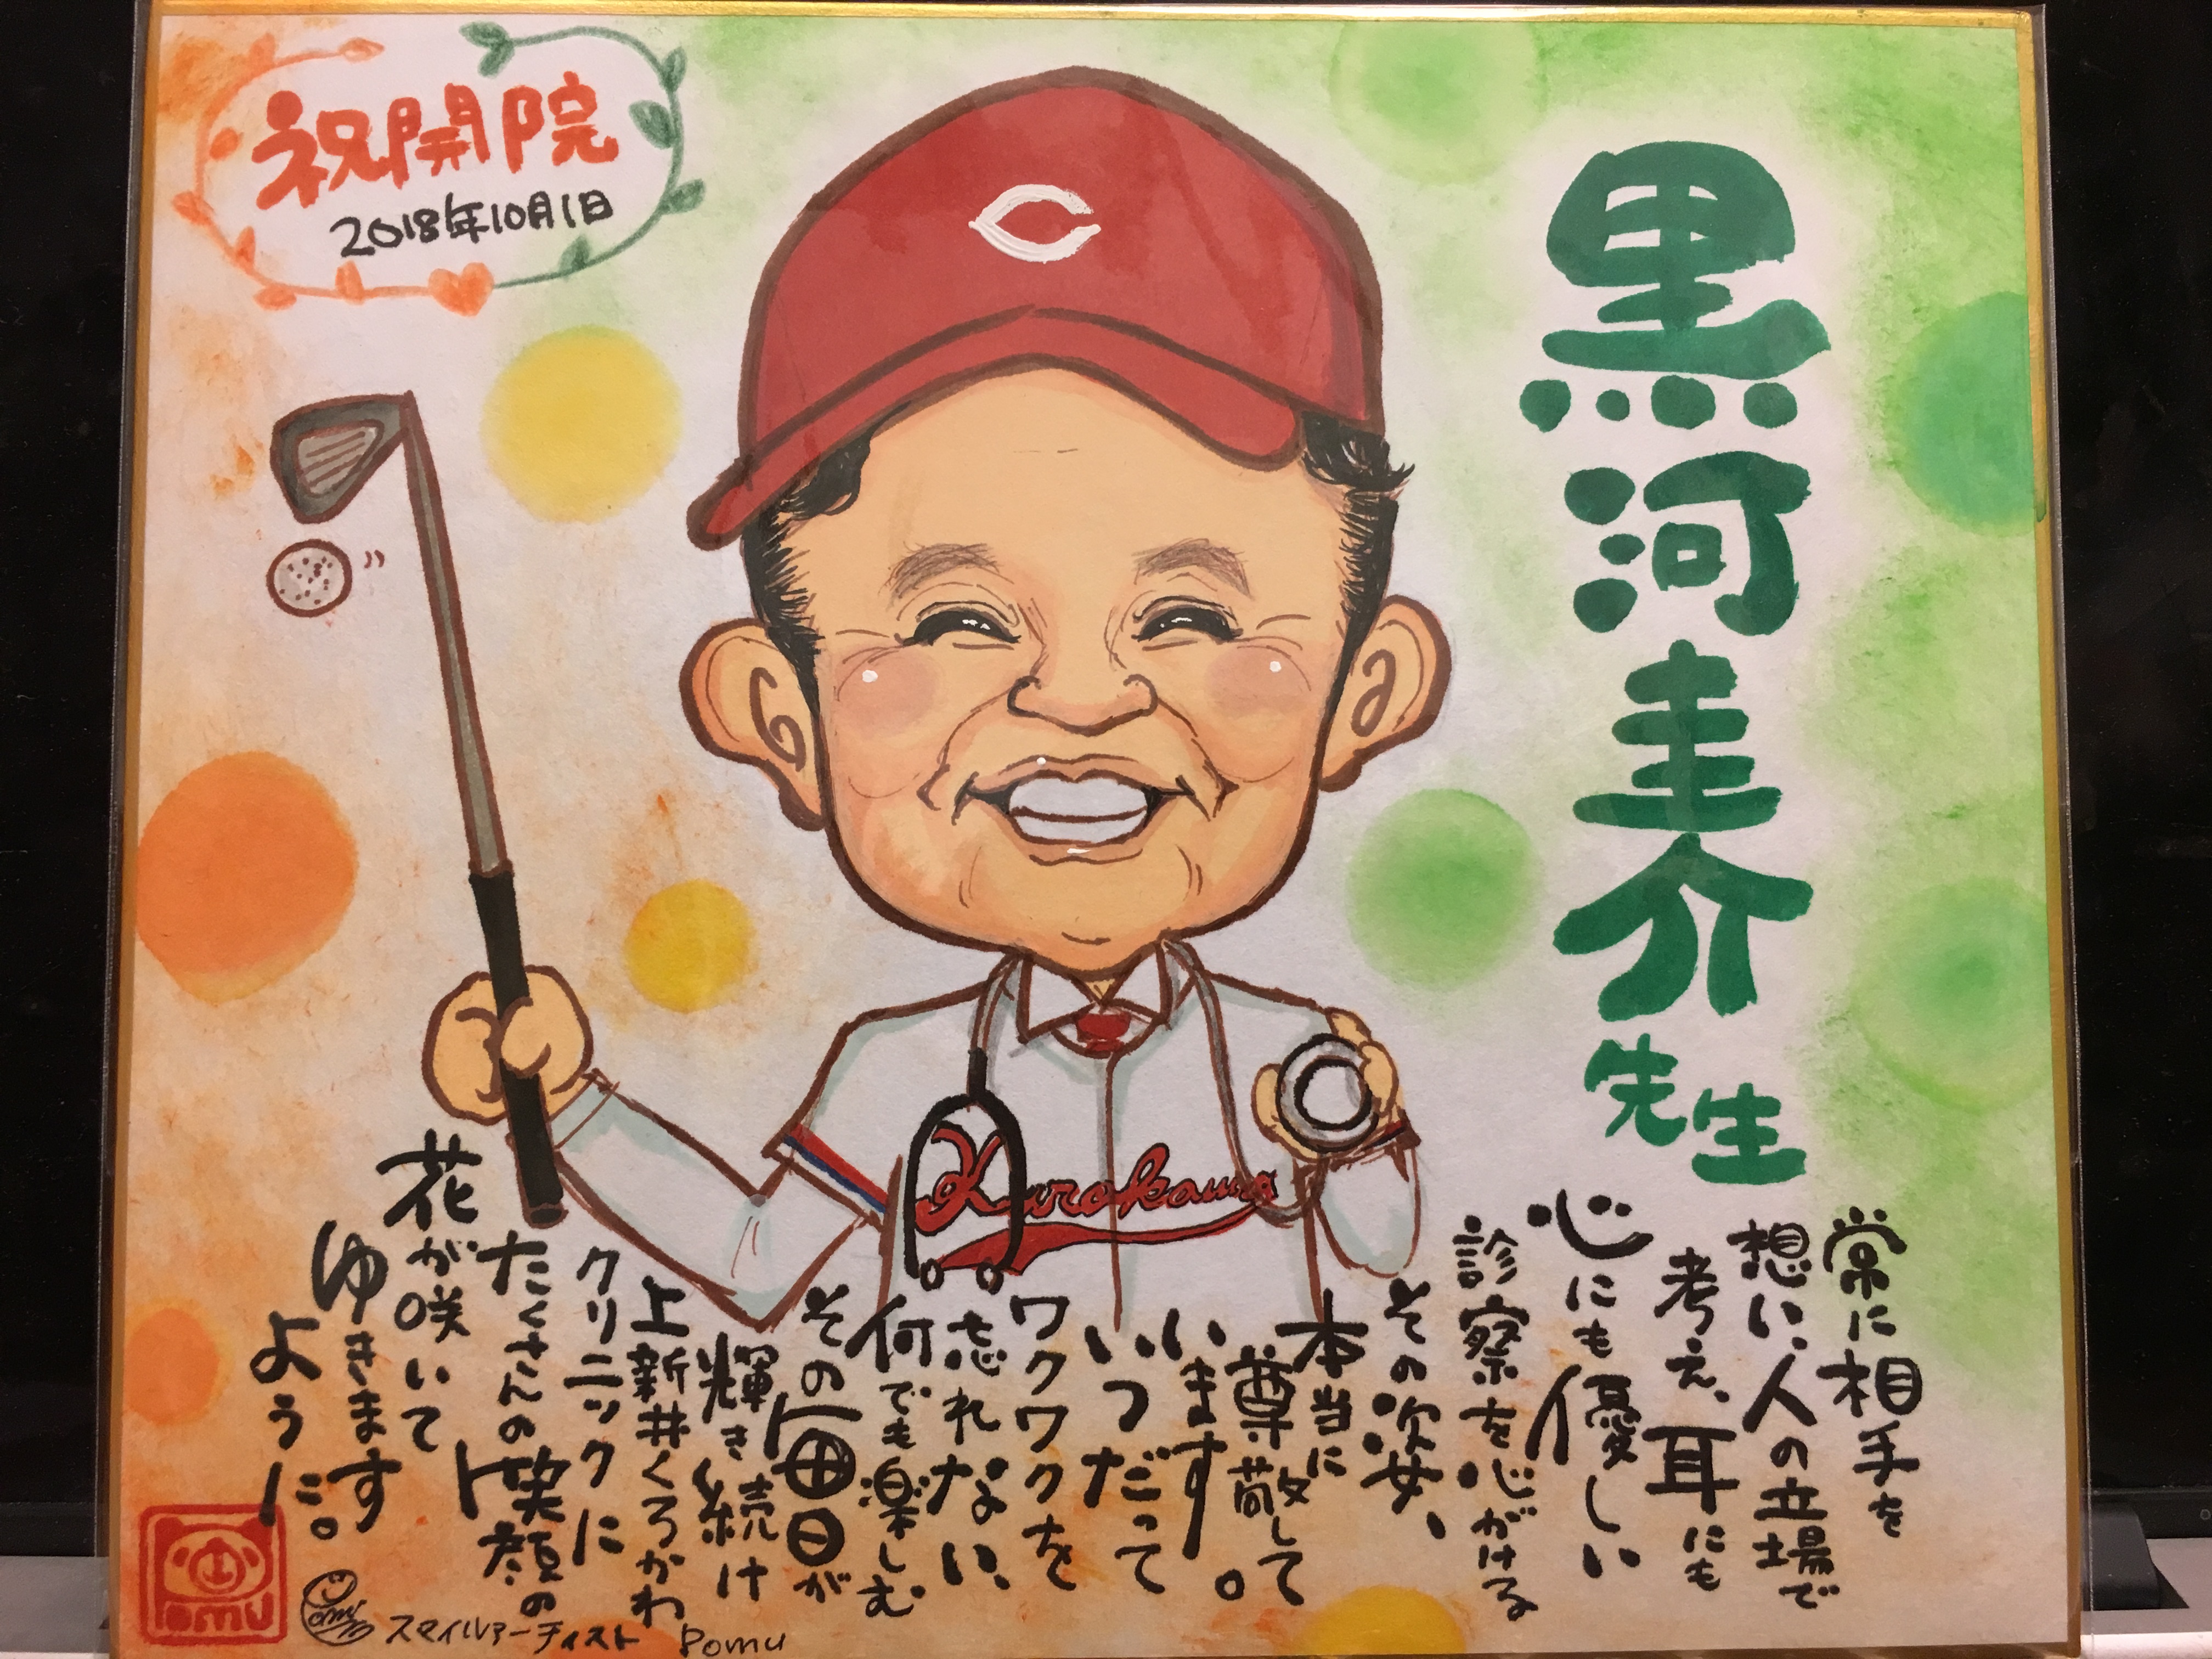 祝開院
2018年10月1日
黒河圭介
先生
C
Kurokawa
常に相手を
想い、人の立場で
考え、耳にも
心にも優しい
診察を心がける
その姿、
本当に
尊敬して
います。
いつだって
ワクワクを
忘れない、
何でも楽しむ
その毎日が
輝き続け
上新井くろかわ
クリニックに
たくさんの笑顔の
花が咲いて
ゆきます
ように。
Pomu
スマイルアーティスト Pomu